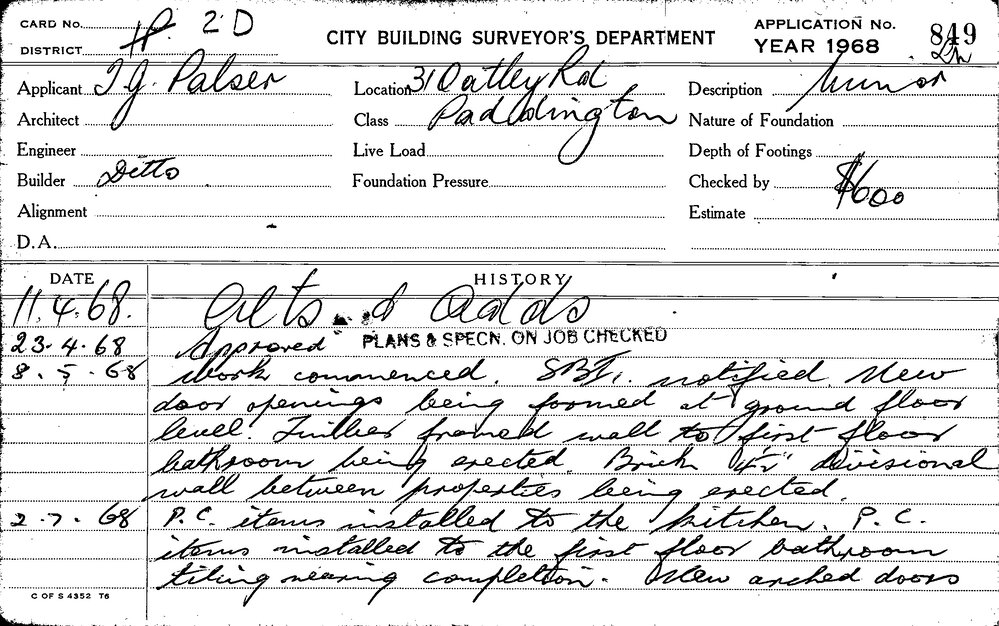 CARD No. 2D
DISTRICT
CITY BUILDING SURVEYOR'S DEPARTMENT
APPLICATION No. 849
YEAR 1968
Applicant J.G. Palser
Location 31 Oatley Rd
Description Minor
Architect
Class Paddington
Nature of Foundation
Engineer
Live Load
Depth of Footings
Builder Ditto
Foundation Pressure
Checked by
Alignment
Estimate $600
D.A.
DATE HISTORY
11.4.68. Alts & Adds
23.4.68 Approved PLANS & SPECN. ON JOB CHECKED
8.5.68 Work commenced. notified. New
door openings being formed at ground floor
level. Timber framed wall to first floor
bathroom being erected. Brick 4½" divisional
wall between properties being erected.
2.7.68 P.C. items installed to the kitchen. P.C.
items installed to the first floor bathroom
tiling nearing completion. New arched doors
C OF S 4352 T6